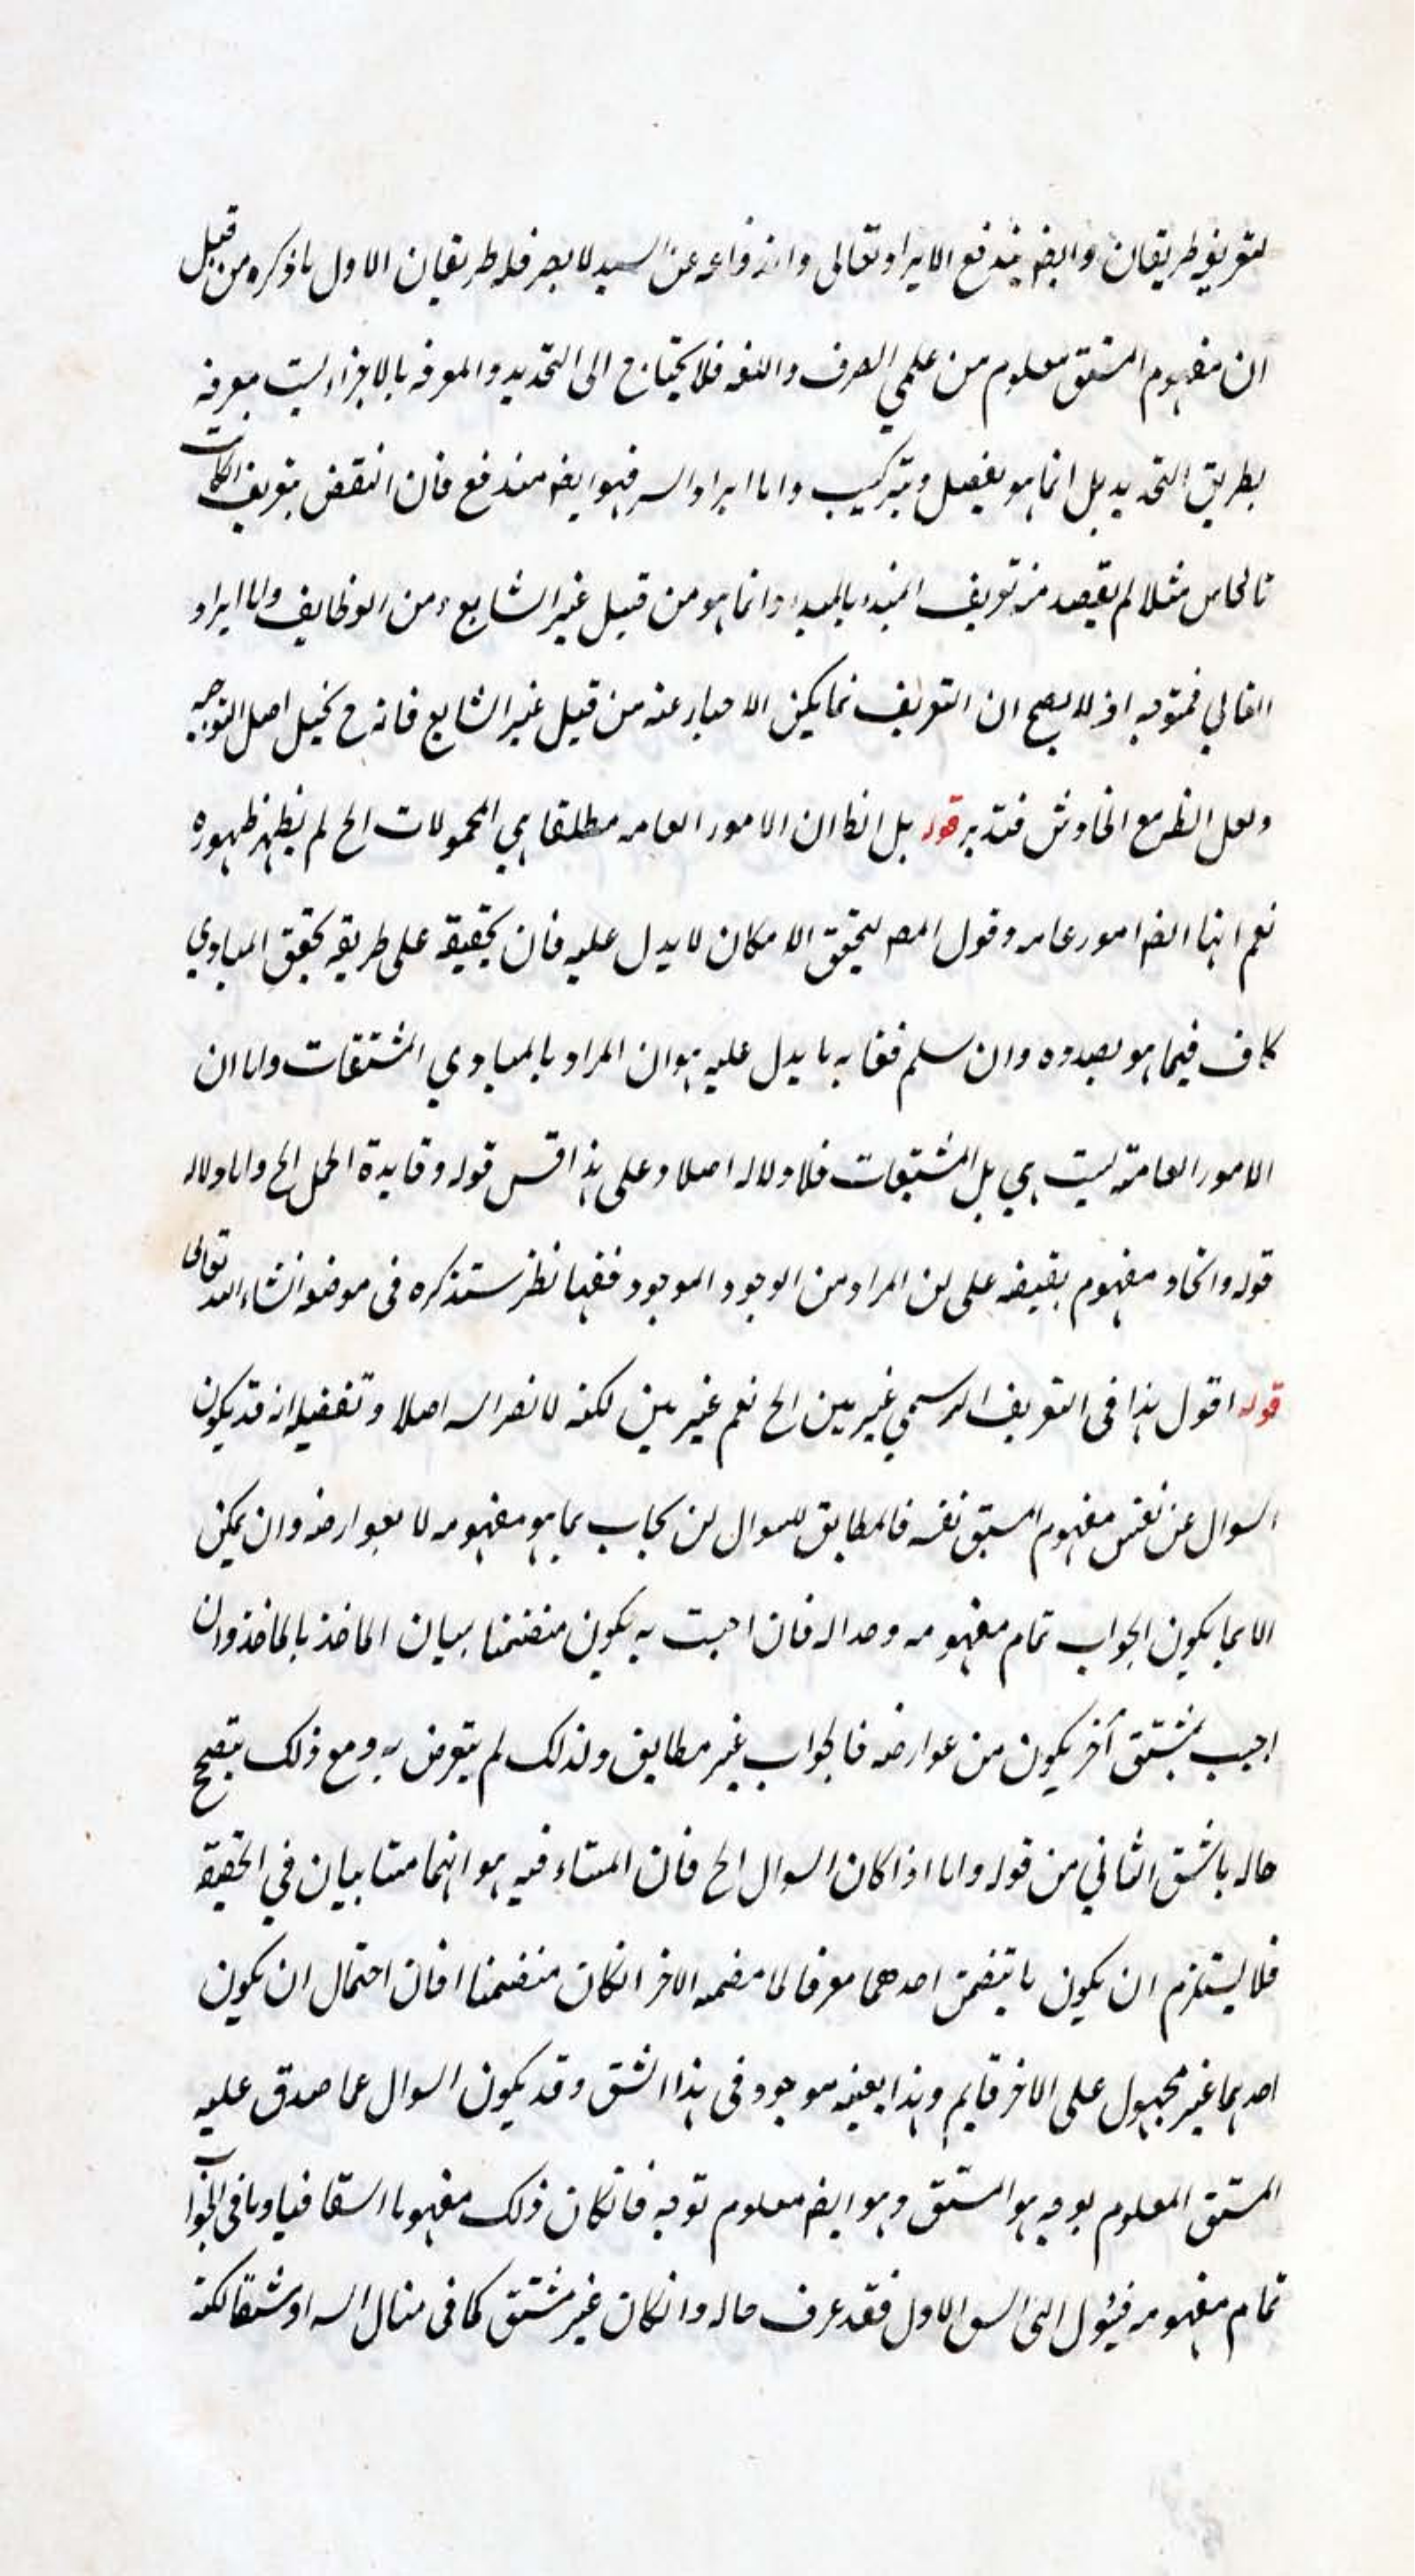 لتعريفه طريقان وايضه يندفع الايراد تعالى واند فاعه عن السيد لا يصر فله طريقان الاول ما ذكره من قبيل
ان مفهوم المشتق معلوم من علمي الصرف واللغه فلا يحتاج الى التحديد والمعرفه بالاجزاء ليست معرفه
بطريق التحديد بل انما هو تفصيل وتركيب واما ايراد السر فهو ايضه مندفع فان النقض بتعريف الكاتب
مثلا لم يقصد منه تعريف المبدء بالمبدء وانما هو من قبيل غير الشايع ومن الوظايف واما ايراد
الفالي فمتوجه اذ لا يصح ان التعريف بما يمكن الاخبار عنه من قبيل غير الشايع فانه ح يخيل اصل التوجيه
ولعل النظر مع الخاوش فتدبر قوله بل الظ ان الامور العامه مطلقا هي المحمولات الخ لم يظهر ظهوره
نعم انها ايضه امور عامه وقول المصه لتحقق الامكان لا يدل عليه فان تحقيقه على طريقه تحقق المبادي
كاف فيما هو بصدده وان سلم فغايه ما يدل عليه هو ان المراد بالمبادي المشتقات واما ان
الامور العامة ليست هي بل المشتقات فلا دلاله اصلا وعلى هذا قس قوله وفايدة الحمل الخ واما دلاله
قوله واتحاد مفهوم نقيضه على ان المراد من الوجود الموجود ففيها نظر ستذكره في موضعه انشاء الله تعالى
قوله اقول هذا في التعريف الرسمي غير بين الخ نعم غير بين لكنه لا نضر السه اصلا وتفصيله انه قد يكون
السوال عن نفس مفهوم المشتق نفسه فالمطابق للسوال ان يجاب بما هو مفهومه لا بعوارضه وان يمكن
الا بما يكون الجواب تمام مفهومه وحد اله فان اجبت به يكون متضمنا لبيان الماخذ بالماخذ وان
اجيب بمشتق آخر يكون من عوارضه فالجواب غير مطابق ولذلك لم يتعرض به ومع ذلك يتضح
حاله بالشق الثاني من قوله واما اذا كان السوال الخ فان المنشاء فيه هو انهما متباينان في الحقيقه
فلا يستلزم ان يكون ما يتضمن احدهما معرفا لما تضمنه الاخر انكان متضمنا اذ فان احتمال ان يكون
احدهما غير مجهول على الاخر قايم وهذا بعينه موجود في هذا الشق وقد يكون السوال عما صدق عليه
المشتق المعلوم بوجه هو المشتق وهو ايضه معلوم بوجه فانكان ذلك مفهوما اشتقاقيا وما في الجواب
تمام مفهومه فيئول الى الشق الاول فقد عرف حاله وانكان غير مشتق كما في مثال السه او مشتقا لكنه